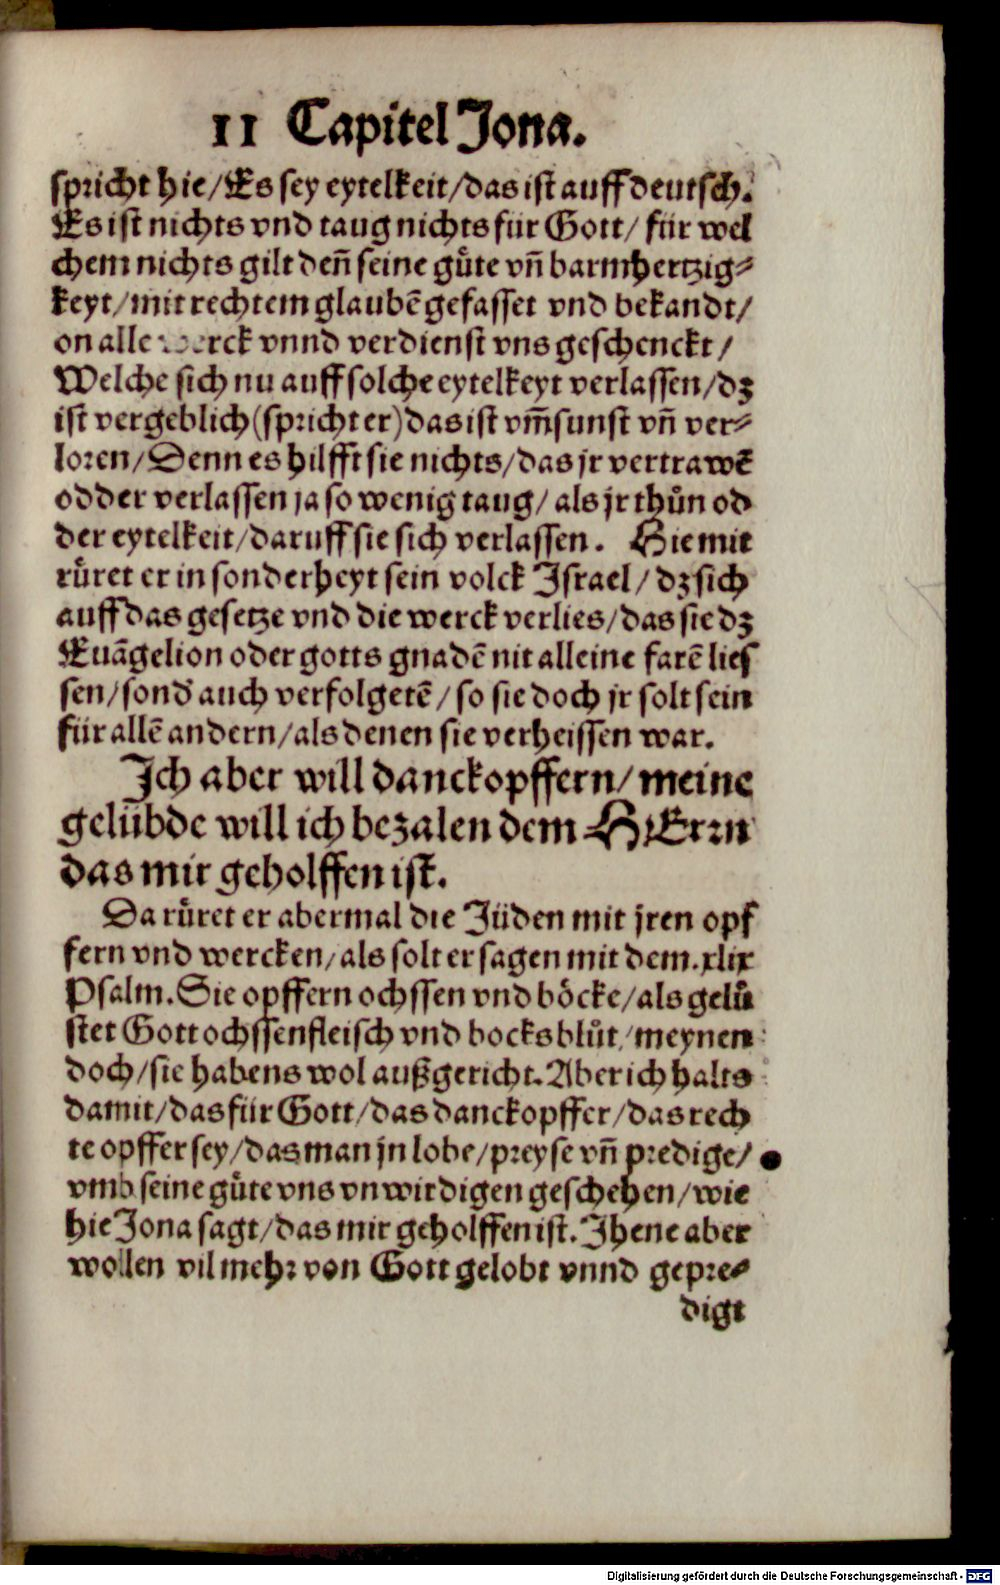 II Capitel Jona.
spricht hie/Es sey eytelkeit/das ist auff deutsch.
Es ist nichts vnd taug nichts für Gott/ für wel
chem nichts gilt deñ seine gůte vñ barmhertzig⸗
keyt/mit rechtem glaubẽ gefasset vnd bekandt/
on alle werck vnnd verdienst vns geschenckt/
Welche sich nu auff solche eytelkeyt verlassen/dz
ist vergeblich(spricht er)das ist vm̃sunst vñ ver⸗
loren/Denn es hilfft sie nichts/das jr vertrawẽ
odder verlassen ja so wenig taug/ als jr thůn od
der eytelkeit/daruff sie sich verlassen. Hie mit
růret er in sonderheyt sein volck Israel/ dz sich
auff das gesetze vnd die werck verlies/das sie dz
Euãgelion oder gotts gnadẽ nit alleine farẽ lies
sen/sond' auch verfolgetẽ/so sie doch jr solt sein
für allẽ andern/als denen sie verheissen war.
Ich aber will danckopffern/ meine
gelübde will ich bezalen dem HErrn
das mir geholffen ist.
Da růret er abermal die Jüden mit jren opf
fern vnd wercken/als solt er sagen mit dem.xlix
Psalm. Sie opffern ochssen vnd böcke/als gelů
stet Gott ochssenfleisch vnd bocksblůt/meynen
doch/sie habens wol außgericht. Aber ich halts
damit/das für Gott/das danckopffer/das rech
te opffer sey/das man jn lobe/preyse vñ predige/
vmb seine gůte vns vnwirdigen geschehen/wie
hie Jona sagt/das mir geholffen ist. Jhene aber
wollen vil mehr von Gott gelobt vnnd gepre⸗
digt
Digitalisierung gefördert durch die Deutsche Forschungsgemeinschaft - DFG